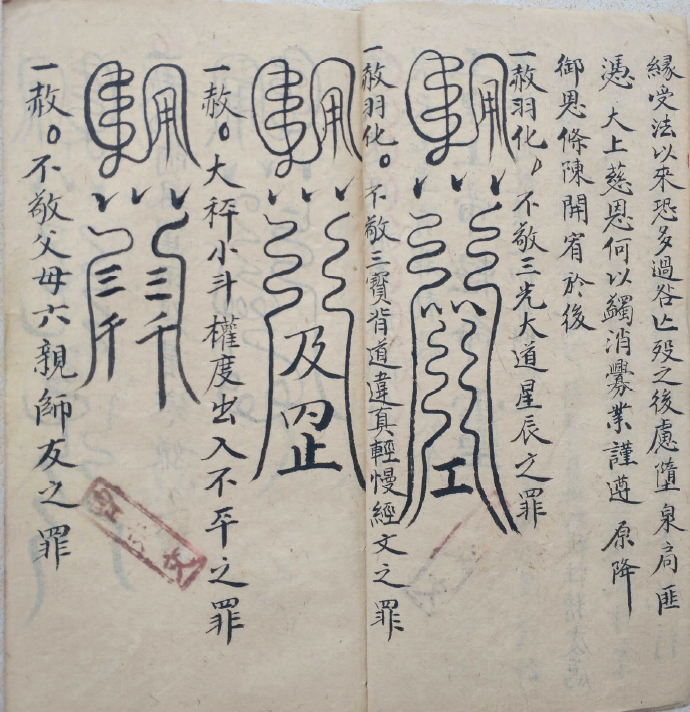 緣受法以來恐多過咎亡歿之後慮墮泉扃匪
憑 大上慈恩何以蠲消釁業謹遵 原降
御恩條陳開宥於後
一赦羽化。不敬三光大道星辰之罪
工
一赦羽化。不敬三寶背道違真輕慢經文之罪
及
一赦。大秤小斗權度出入不平之罪
三千 三千
一赦。不敬父母六親師友之罪